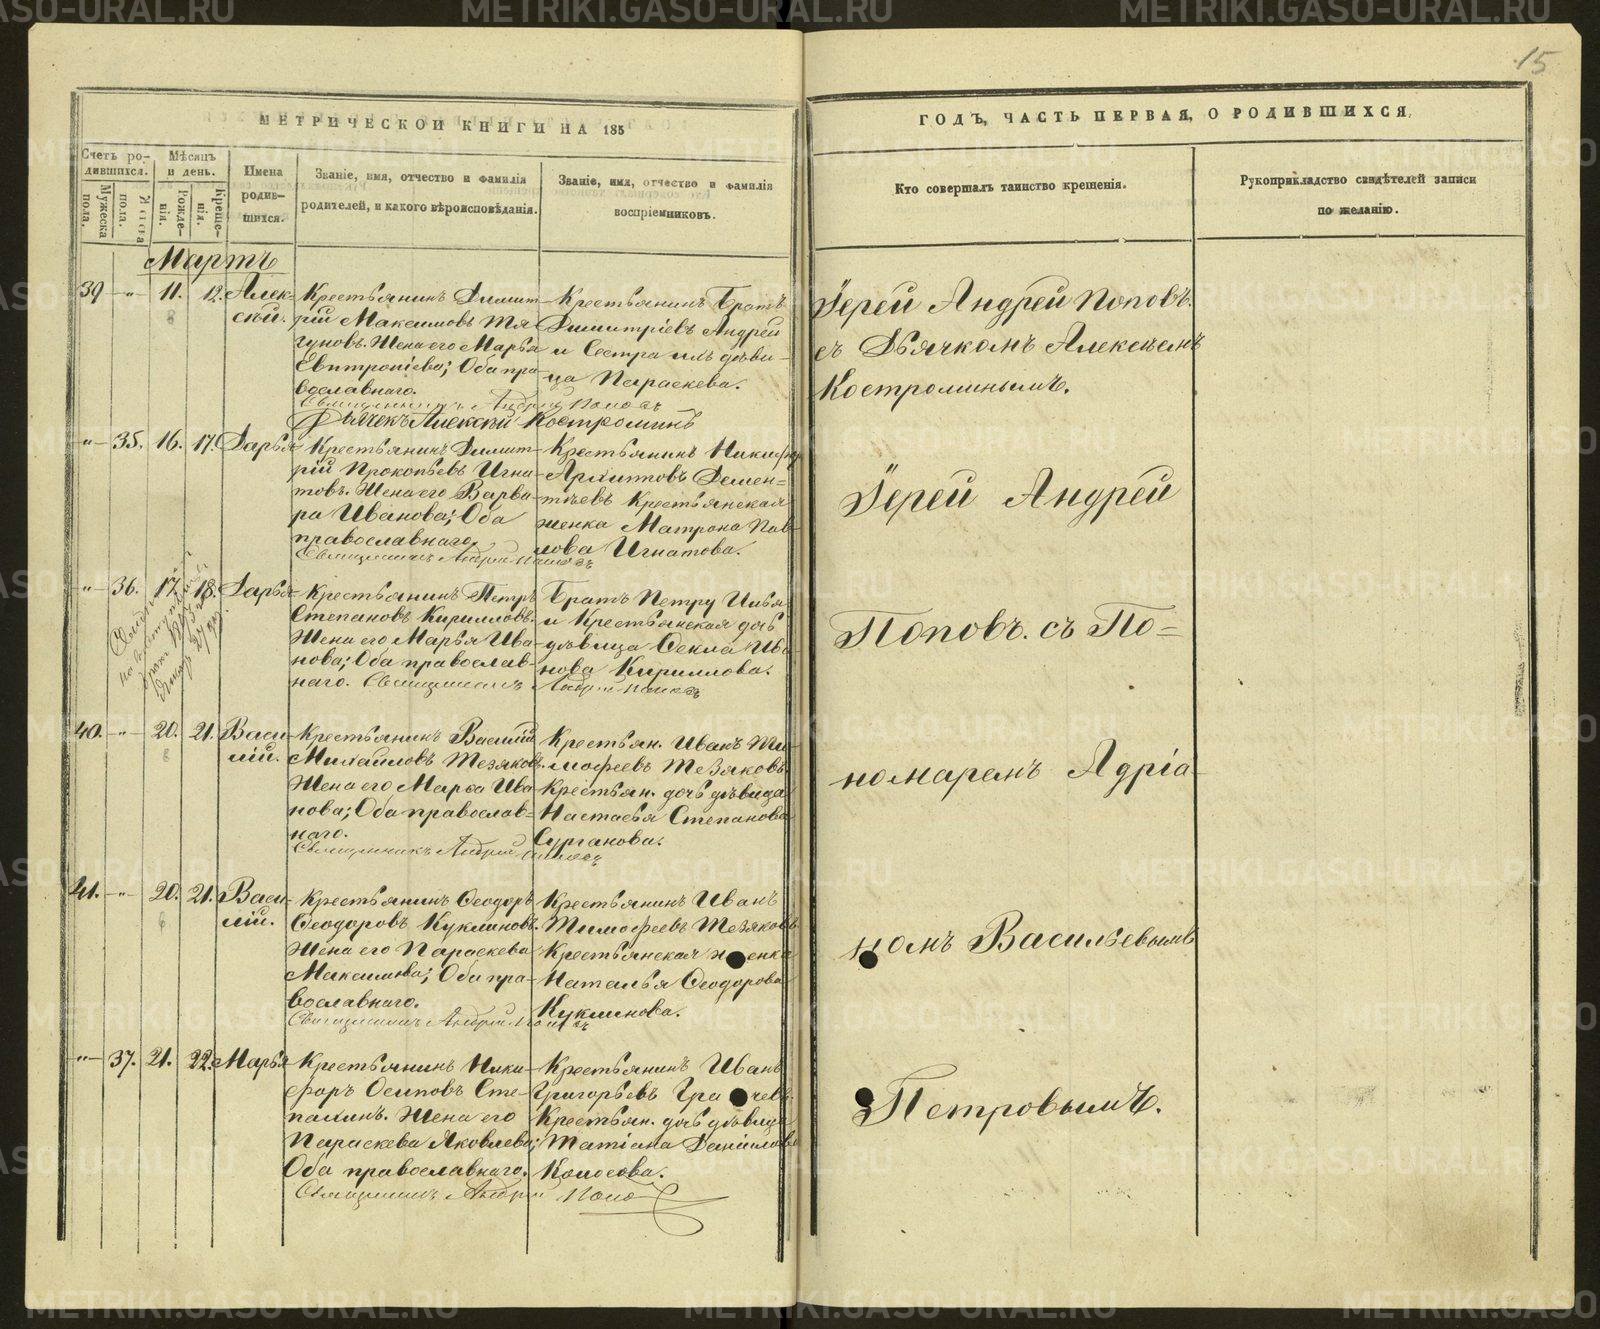 15
МЕТРИЧЕСКОЙ КНИГИ НА 185
ГОДЪ, ЧАСТЬ ПЕРВАЯ, О РОДИВШИХСЯ.
Счетъ ро-
дившихся.
Мужеска
пола.
пола.
Мѣсяцъ
и день.
Рожде-
нія.
Креще-
нія.
Имена
родив-
шихся.
Званіе, имя, отчество и фамилія
родителей, и какого вѣроисповѣданія.
Званіе, имя, отчество и фамилія
воспріемниковъ.
Кто совершалъ таинство крещенія.
Рукоприкладство свидѣтелей записи
по желанію.
Мартъ
39 -"- 11. 12. Алек-
сѣй.
Крестьянинъ Димит-
рій Максимовъ Тя
гуновъ. Жена его Марья
Евтропіева; Оба пра
вославнаго.
Священникъ Андрей Поповъ
Дьячекъ Алексѣй Костроминъ
Крестьянинъ Братъ
Димитріевъ Андрей
и Сестра ихъ дѣви-
ца Параскева.
-"- 35. 16. 17. Дарья
Крестьянинъ Димит-
рій Прокопьевъ Игна-
товъ. Жена его Варва-
ра Иванова; Оба
православнаго.
Священникъ Андрей Поповъ
Крестьянинъ Никифор
Архиповъ Демен-
тьевъ Крестьянская
женка Матрона Пав-
лова Игнатова.
-"- 36. 17. 18. Дарья
Крестьянинъ Петръ
Степановъ Кирилловъ.
Жена его Марья Ива-
нова; Оба православ-
наго. Священникъ Андрей Поповъ
Братъ Петру Илья
и Крестьянская дочь
дѣвица Ѳекла Ива
нова Кириллова.
40. -"- 20. 21. Васи-
лій.
Крестьянинъ Василій
Михайловъ Тезяковъ.
Жена его Марѳа Ива
нова; Оба православ-
наго.
Священникъ Андрей Поповъ
Крестьян. Иванъ Ти-
мофеевъ Тезяковъ.
Крестьян. дочь дѣвица
Настасья Степанова
Сурганова.
41. -"- 20. 21. Васи-
лій.
Крестьянинъ Ѳеодоръ
Ѳеодоровъ Куклиновъ.
Жена его Параскева
Максимова; Оба пра-
вославнаго.
Священникъ Андрей Поповъ
Крестьянинъ Иванъ
Тимофеевъ Тезяковъ
Крестьянская женка
Наталья Ѳеодорова
Куклинова.
-"- 37. 21. 22. Марья
Крестьянинъ Ники-
форъ Осиповъ Сте-
палинъ. Жена его
Параскева Яковлева;
Оба православнаго.
Священникъ Андрей Поповъ
Крестьянинъ Иванъ
Григорьевъ Грачевъ.
Крестьян. дочь дѣвица
Татіана Даніилова
Колосова.
Іерей Андрей Поповъ.
съ Дьячкомъ Алексѣемъ
Костроминымъ.
Іерей Андрей
Поповъ. съ По=
номаремъ Адріа-
номъ Васильевымъ
Петровымъ.
METRIKI.GASO-URAL.RU